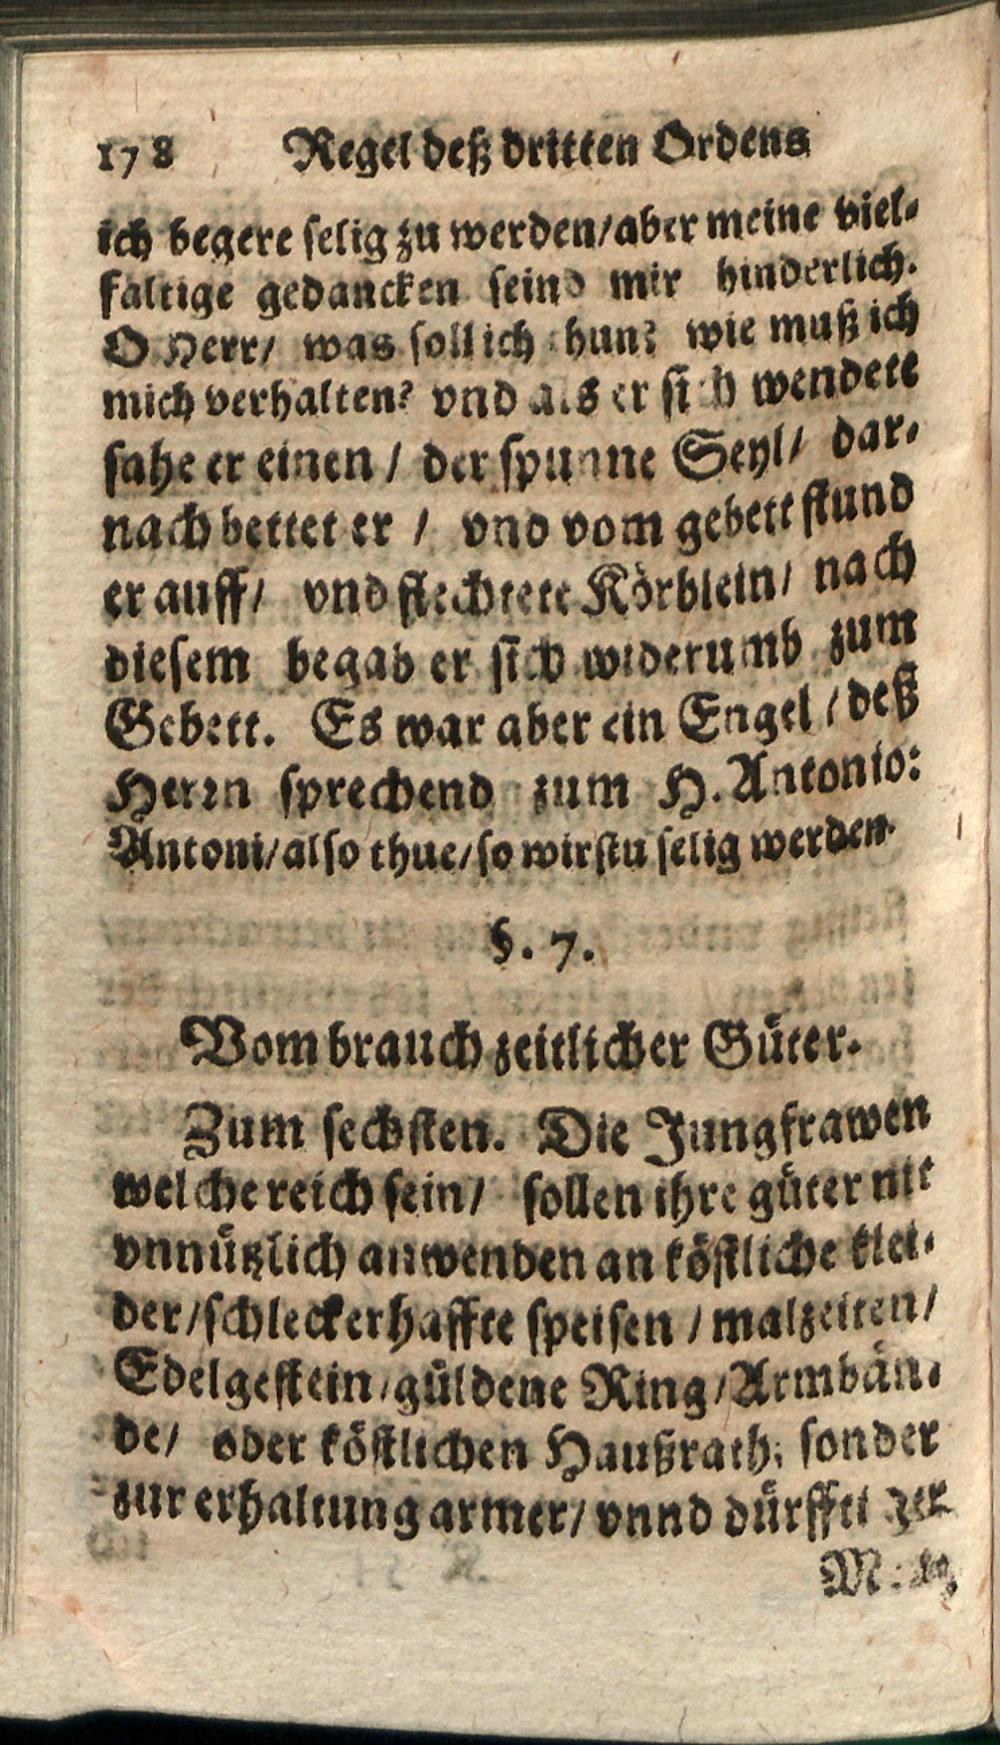 178 Regel deß dritten Ordens
ich begere selig zu werden/aber meine viel-
faltige gedancken seind mir hinderlich.
O Herr/ was soll ich thun? wie muß ich
mich verhalten? vnd als er sich wendete
sahe er einen / der spunne Seyl/ dar-
nach bettet er / vnd vom gebett stund
er auff/ vnd flechtete Körblein/ nach
diesem begab er sich widerumb zum
Gebett. Es war aber ein Engel / deß
Herrn sprechend zum H. Antonio:
Antoni/also thue/so wirstu selig werden.
§. 7.
Vom brauch zeitlicher Güter.
Zum sechsten. Die Jungfrawen
welche reich sein/ sollen ihre güter nit
vnnützlich anwenden an köstliche klei-
der/schleckerhaffte speisen / malzeiten/
Edelgestein/güldene Ring/Armbän-
de/ oder köstlichen Haußrath; sonder
zur erhaltung armer/ vnnd dürfftiger